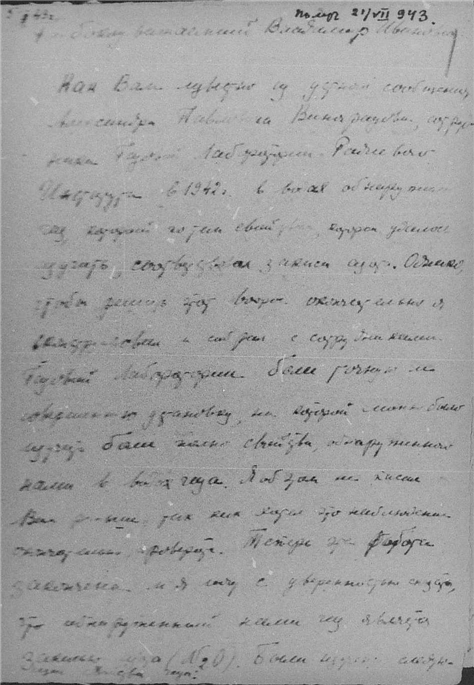 получ 21/VII 943.
Глубокоуважаемый Владимир Иванович
Как Вам известно из устной сообщения
Александра Павловича Виноградова, сотруд-
ники Газовой Лаборатории Радиевого
Института в 1942 г. в воздухе обнаружили
газ, который по тем свойствам, которые удалось
изучить, соответствовал закиси азота. Однако,
чтобы решить этот вопрос окончательно я
и собрал с сотрудниками
Газовой Лаборатории более точную и
совершенную установку, на которой можно было
изучить более полно свойства, обнаруженного
нами в воздухе газа. Я об этом не писал
Вам раньше, так как хотел это наблюдение
окончательно проверить. Теперь эта работа
закончена и я могу с уверенностью сказать,
что обнаруженный нами газ является
закисью азота (N₂O). Были изучены